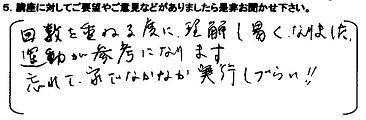 5. 講座に対してご要望やご意見などがありましたら是非お聞かせ下さい。
回数を重ねる度に、理解し易くなりました。
運動が参考になります
忘れて、家でなかなか実行しづらい!!